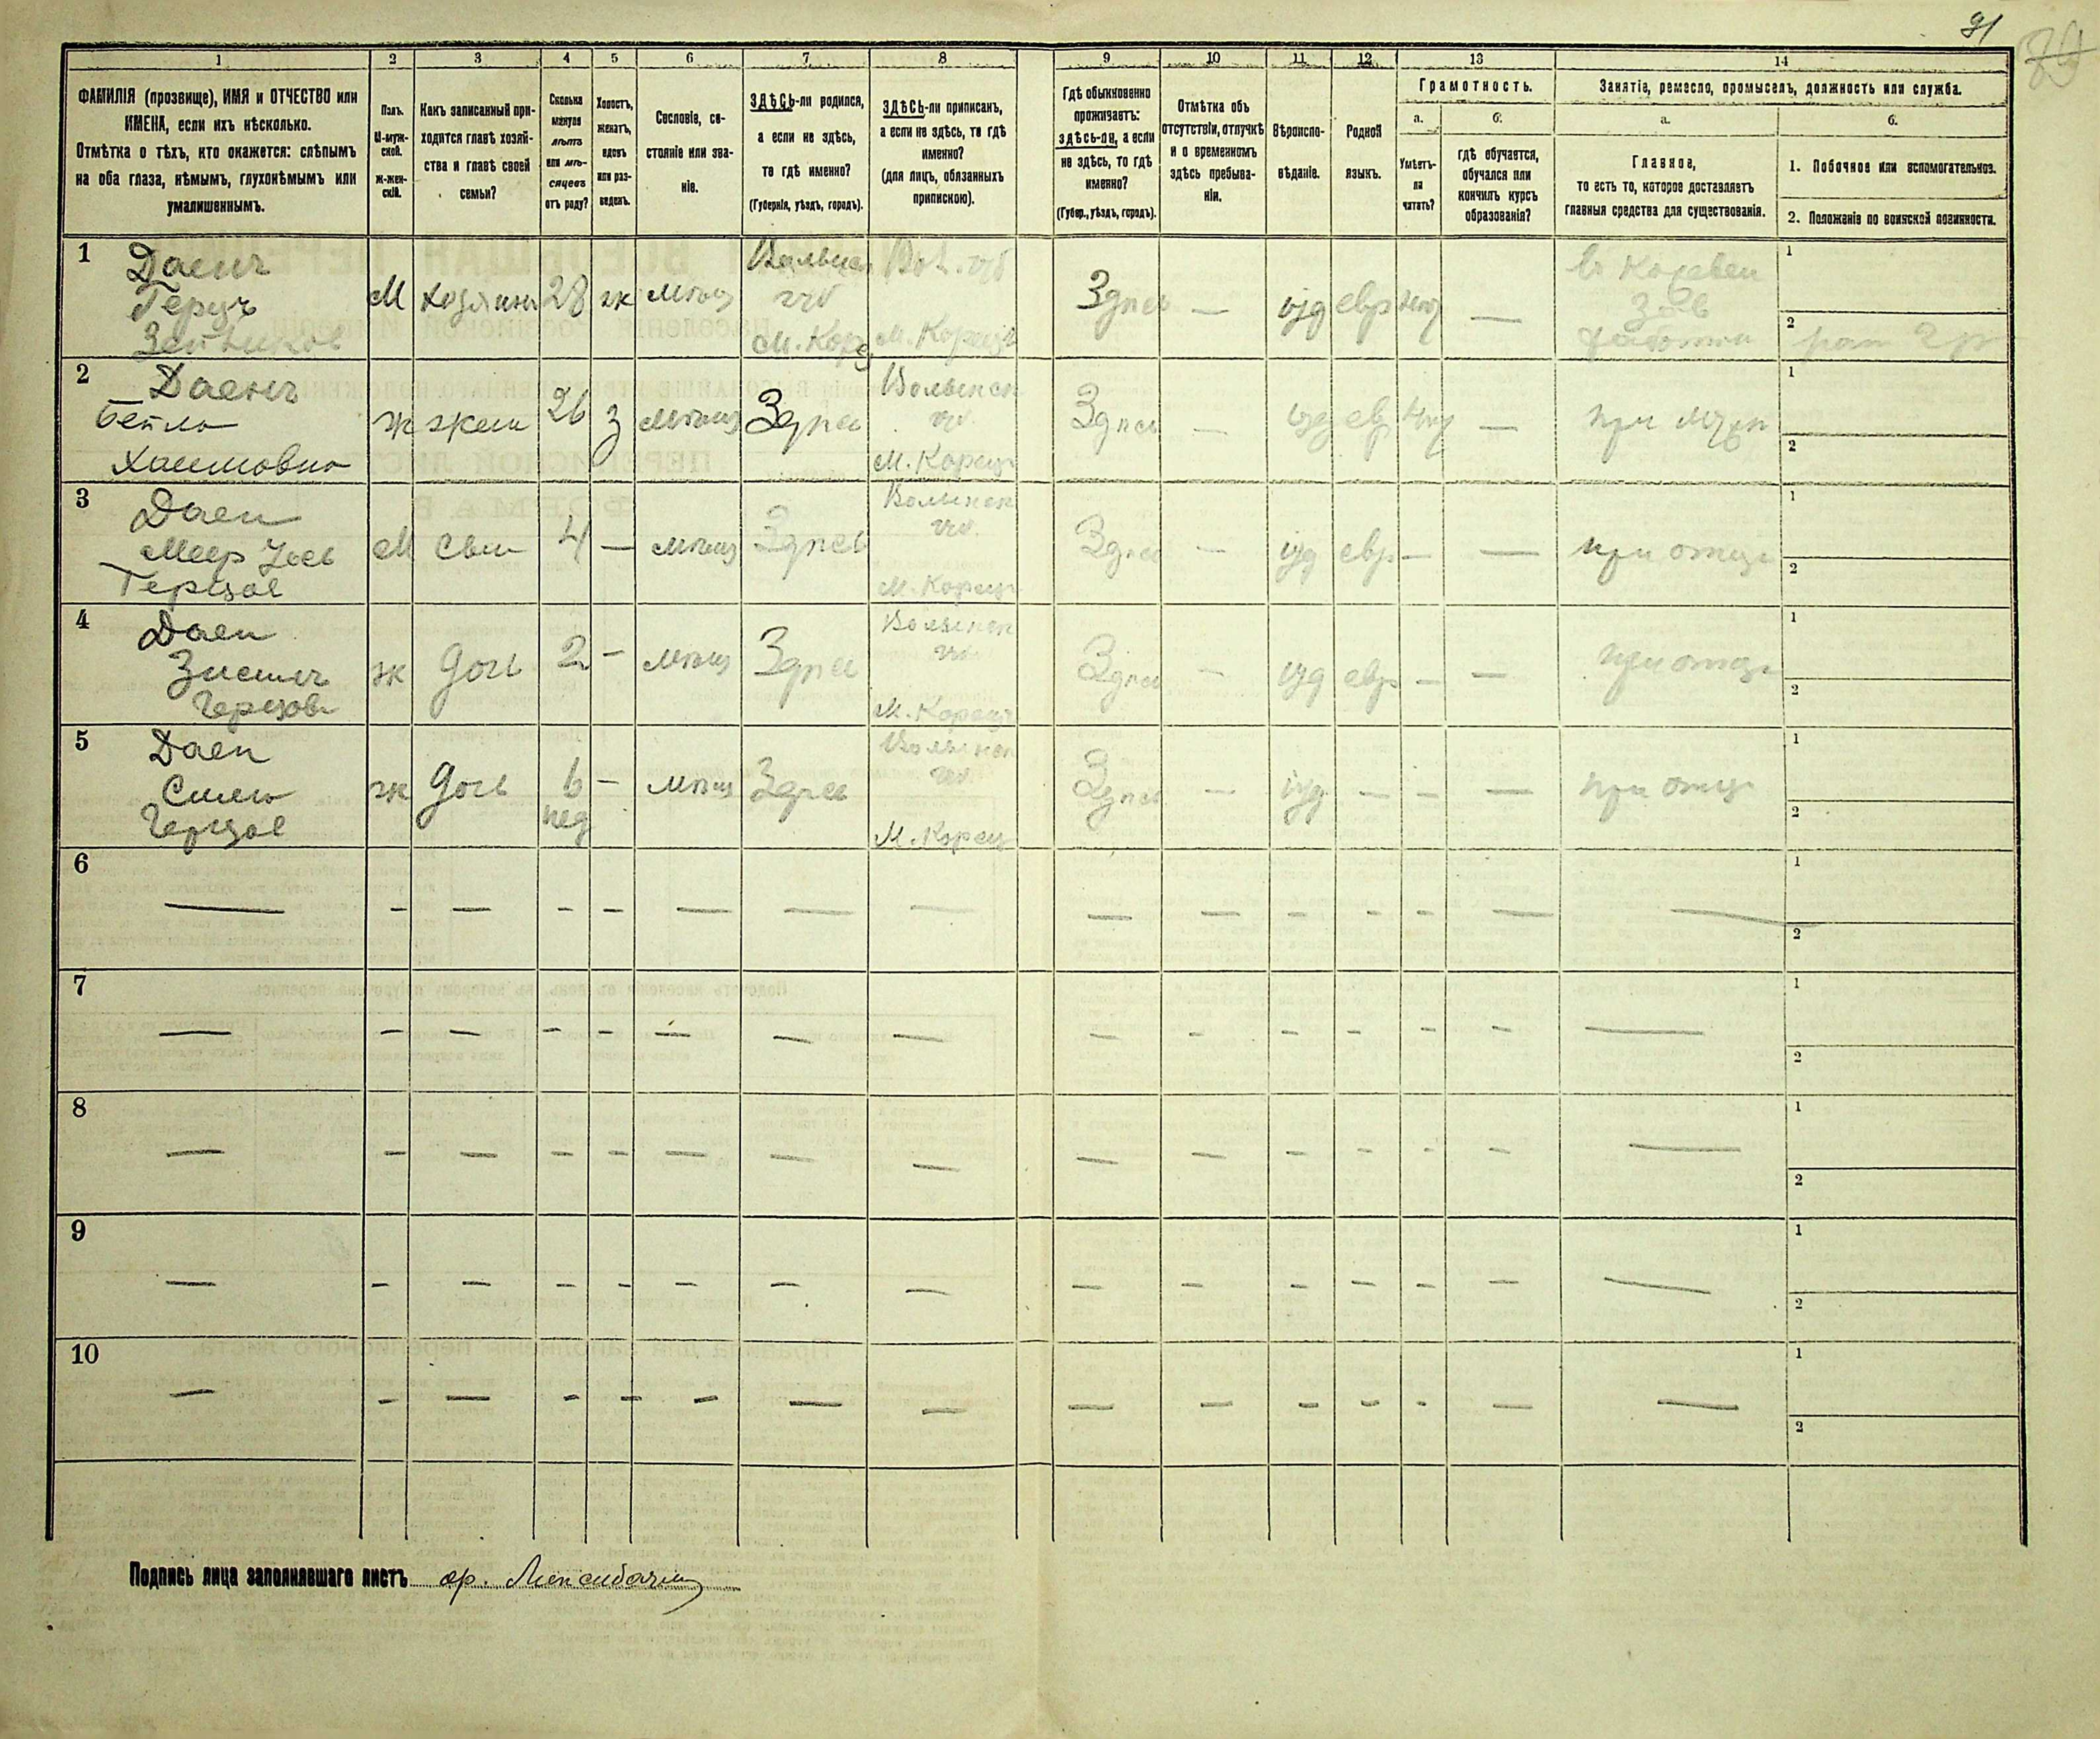 91
1 2 3 4 5 6 7 8 9 10 11 12 13 14
ФАМИЛІЯ (прозвище), ИМЯ и ОТЧЕСТВО или
ИМЕНА, если ихъ нѣсколько.
Отмѣтка о тѣхъ, кто окажется: слѣпымъ
на оба глаза, нѣмымъ, глухонѣмымъ или
умалишеннымъ.
Полъ.
М-муж-
ской.
Ж-жен-
скій.
Какъ записанный при-
ходится главѣ хозяй-
ства и главѣ своей
семьи?
Сколько
минуло
лѣтъ
или мѣ-
сяцевъ
отъ роду?
Холостъ,
женатъ,
вдовъ
или раз-
веденъ.
Сословіе, со-
стояніе или зва-
ніе.
ЗДѢСЬ-ли родился,
а если не здѣсь,
то гдѣ именно?
(Губернія, уѣздъ, городъ).
ЗДѢСЬ-ли приписанъ,
а если не здѣсь, то гдѣ
именно?
(для лицъ, обязанныхъ
припискою).
Гдѣ обыкновенно
проживаетъ:
здѣсь-ли, а если
не здѣсь, то гдѣ
именно?
(Губер., уѣздъ, городъ).
Отмѣтка объ
отсутствіи, отлучкѣ
и о временномъ
здѣсь пребыва-
ніи.
Вѣроиспо-
вѣданіе.
Родной
языкъ.
Грамотность.
а.
Умѣетъ-
ли
читать?
б.
гдѣ обучается,
обучался или
кончилъ курсъ
образованія?
Занятіе, ремесло, промыселъ, должность или служба.
а.
Главное,
то есть то, которое доставляетъ
главныя средства для существованія.
б.
1. Побочное или вспомогательное.
2. Положеніе по воинской повинности.
1
Даенъ
Герцъ
М
хозяинъ
28
ж
мѣщ
губ
М. Корец
М. Корецъ
Здѣсь
—
іуд
евр
—
1
2
2
Даенъ
Бейла
Хаимовна
ж
жена
26
з
мѣщ
Здѣсь
Волынск
губ.
М. Корецъ
Здѣсь
—
іуд
евр
—
при муж
1
2
3
Даен
Меер
Герцов
М
сын
4
—
мѣщ
Здѣсь
Волынск
губ.
М. Корецъ
Здѣсь
—
іуд
евр
—
—
при отце
1
2
4
Даен
Герцов
ж
дочь
2
—
мѣщ
Здѣсь
Волынск
губ.
М. Корецъ
Здѣсь
—
іуд
евр
—
—
при отце
1
2
5
Даен
Герцов
ж
дочь
6
нед
—
мѣщ
Здѣсь
Волынск
губ.
М. Корец
Здѣсь
—
іуд
—
—
—
при отце
1
2
6
1
2
7
1
2
8
1
2
9
1
2
10
1
2
Подпись лица заполнявшаго листъ